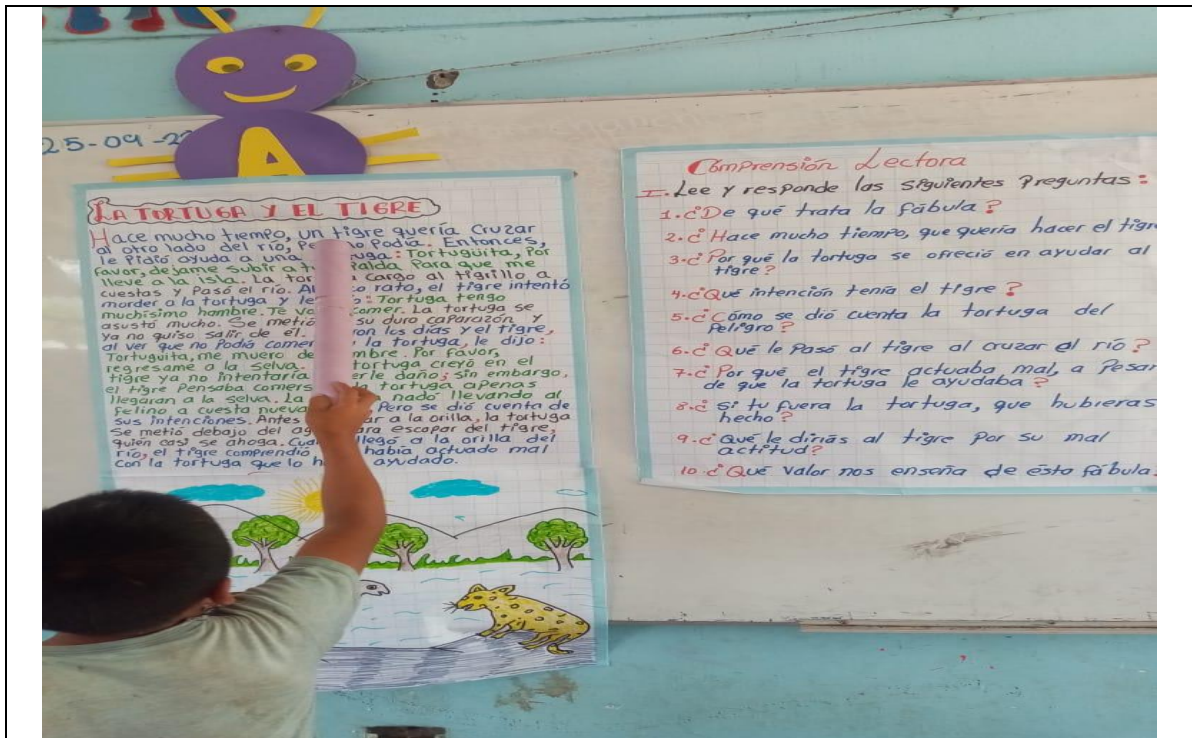 25-09-22
A
LA TORTUGA Y EL TIGRE
Hace mucho tiempo, un tigre quería cruzar
al otro lado del río, podía. Entonces,
le Pidió ayuda a una : Tortuguita, Por
favor, dejame subir a Para que me
lleve a la isla. La cargo al tigrillo a
cuestas y Pasó el río. rato, el tigre intentó
morder a la tortuga y : Tortuga tengo
muchísimo hambre. Te comer. La tortuga se
asustó mucho. Se metió su duro caparazón y
ya no quiso salir de él. los días y el tigre,
al ver que no Podía la tortuga, le dijo:
Tortuguita, me muero de Por favor,
regresame a la selva. tortuga creyó en el
tigre ya no intentaría daño; sin embargo,
el tigre Pensaba tortuga apenas
llegaran a la selva. La nadó llevando al
felino a cuesta Pero se dió cuenta de
sus intenciones. Antes a la orilla, la tortuga
se metió debajo del escapar del tigre,
quien casi se ahoga. llegó a la orilla del
río, el tigre comprendió había actuado mal
con la tortuga que lo ayudado.
Comprensión Lectora
I. Lee y responde las siguientes Preguntas:
1. ¿De qué trata la fábula?
2. ¿Hace mucho tiempo, que quería hacer el
3. ¿Por qué la tortuga se ofreció en ayudar al
tigre?
4. ¿Qué intención tenía el tigre?
5. ¿Cómo se dió cuenta la tortuga del
Peligro?
6. ¿Qué le Pasó al tigre al cruzar el río?
7. ¿Por qué el tigre actuaba mal, a Pesar
de que la tortuga le ayudaba?
8. ¿Si tu fuera la tortuga, que hubieras
hecho?
9. ¿Qué le dirías al tigre Por su mal
actitud?
10. ¿Qué valor nos enseña de ésta fábula.